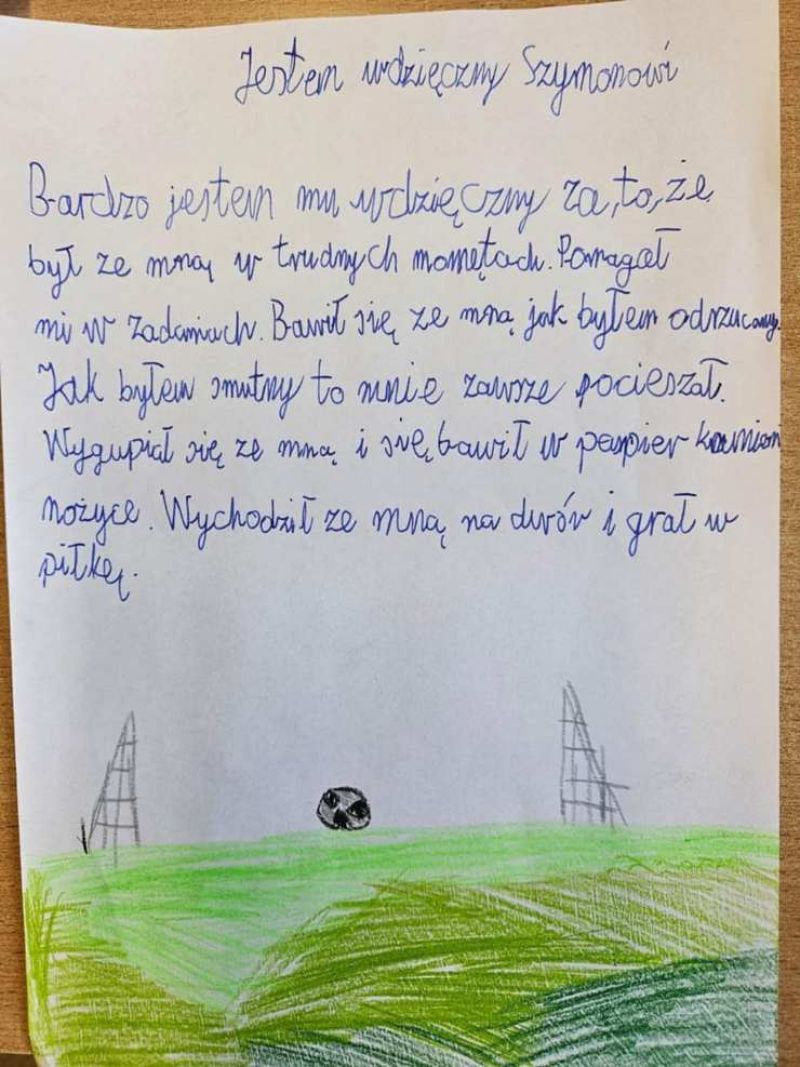 Jestem wdzięczny Szymonowi
Bardzo jestem mu wdzięczny za, to, że
był ze mną w trudnych momętach. Pomagał
mi w zadaniach. Bawił się ze mną jak byłem odrzucony.
Jak byłem smutny to mnie zawsze pocieszał.
Wygupiał się ze mną i się bawił w papier kamień
nożyce. Wychodził ze mną na dwór i grał w
piłkę.